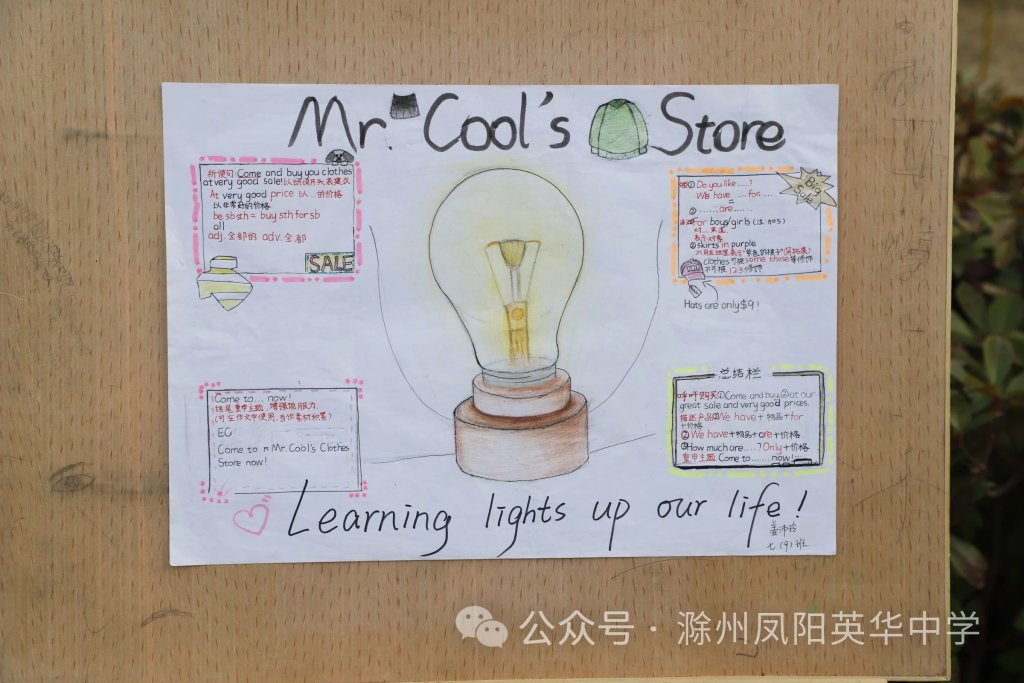 Mr. Cool's Store
祈使句: Come and buy you clothes
at very good sale!以动词开头,表建议
At very good price 以...的价格
以非常好的价格
be sb sth = buy sth for sb
all
adj.全部的 adv.全部
SALE
① Do you like ......?
We have ......for......
=
② ......are......
for boys/girls
对...来说
表示对象
② skirts in purple
clothes 可被 some those 等修饰
不可被 123 修饰
Hats are only $9!
Come to ... now!
结尾重申主题,增强说服力.
(可在作文中使用,当作素材如果)
EG
Come to Mr.Cool's Clothes
Store now!
总结栏
呼吁购买①Come and buy②at our
great sale and very good prices.
描述产品①We have+物品+for
+价格
②We have+物品+are+价格
③How much are....? Only+价格
重申主题 Come to.......now!
Learning lights up our life!
七(9)班
公众号·滁州凤阳英华中学